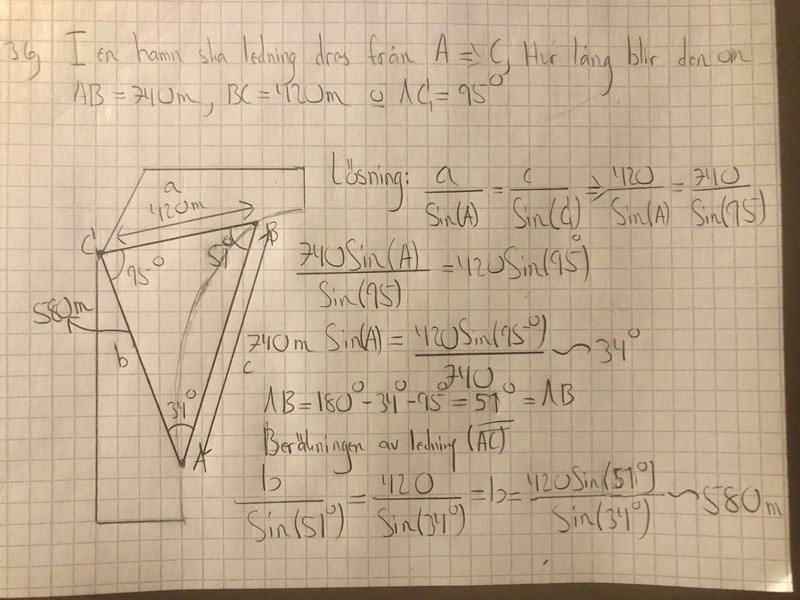 36, I en hamn ska ledning dras från A => C, Hur lång blir den om
AB = 740m, BC = 420m o ΛC = 95°
Lösning: a/Sin(A) = c/Sin(C) => 420/Sin(A) = 740/Sin(95)
740Sin(A)/Sin(95) = 420Sin(95°)
Sin(A) = 420Sin(95°)/740 ~ 34°
ΛB = 180° - 34° - 95° = 51° = ΛB
Beräkningen av ledning (AC)
b/Sin(51°) = 420/Sin(34°) = b = 420Sin(51°)/Sin(34°) ~ 580m
a
420m
C
B
95°
51°
580m
b
740m
c
34°
A